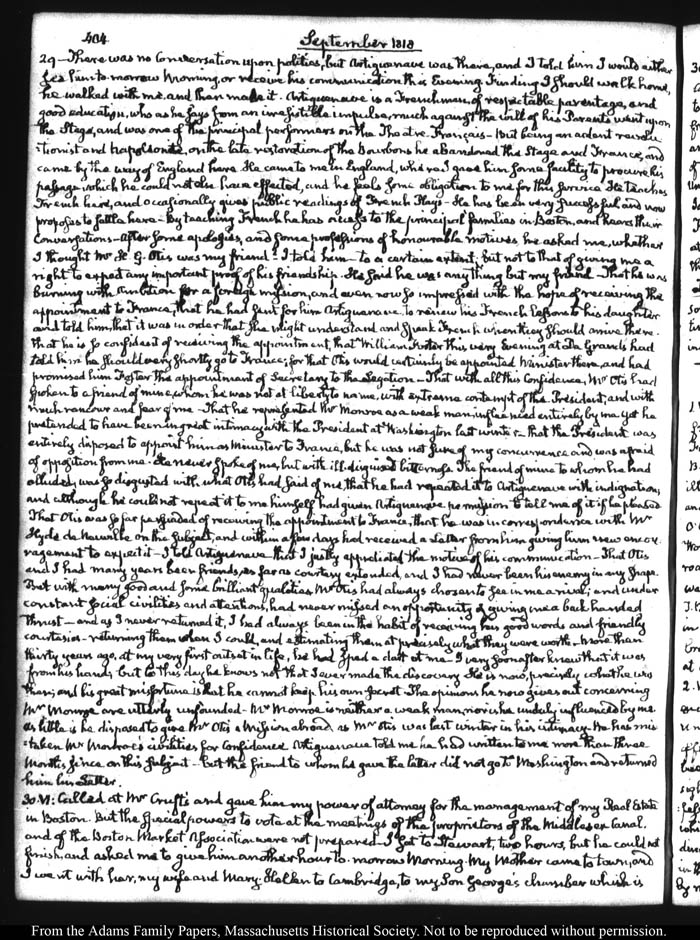 404
September 1818
29 — There was no Conversation upon politics, but Artiguenave was there, and I told him I would either
see him to-morrow Morning, or receive his communication this Evening. Finding I should walk home,
he walked with me, and then made it. Artiguenave is a Frenchman, of respectable parentage, and
good education, who as he says from an irresistible impulse, much against the will of his Parents went upon
the Stage, and was one of the principal performers on the Theatre Français — But being an ardent revolu
-tionist and Napoleonite, on the late restoration of the Bourbons he abandoned the Stage and France, and
came by the way of England here. He came to me in England, where I gave him some facility to procure his
passage which he could not else have effected, and he feels some obligation to me for this service. He teaches
French here, and occasionally gives public readings of French Plays — He has been very successful and now
proposes to settle here — By teaching French he has access to the principal families in Boston, and hears their
Conversations — After some apologies, and some professions of honourable motives he asked me, whether
I thought Mr. H. G. Otis was my friend? I told him — to a certain extent, but not to that of giving me a
right to expect any important proof of his friendship. He said he was anything but my friend — That he was
burning with ambition for a foreign mission, and even now so impressed with the hope of receiving the
appointment to France, that he had sent for him Artiguenave, to renew his French lessons to his daughter
and told him, that it was in order that she might understand and speak French when they should arrive there.
that he is so confident of receiving the appointment, that William Foster this very Evening at De Grand's had
told him he should very shortly go to France; for that Otis would certainly be appointed Minister there, and had
promised him Foster the appointment of Secretary to the Legation — That with all this Confidence, Mr Otis had
spoken to a friend of mine, whom he was not at liberty to name, with extreme contempt of the President, and with
much rancour and fear of me — That he represented Mr Monroe as a weak man, influenced entirely by me. Yet he
pretended to have been in great intimacy with the President at Washington last winter — that the President was
entirely disposed to appoint him as Minister to France, but he was not sure of my concurrence and was afraid
of opposition from me. He never spoke of me, but with ill-disguised bitterness. The friend of mine to whom he had
alluded, was so disgusted with what Otis had said of me, that he had repeated it to Artiguenave with indignation,
and although he could not repeat it to me himself had given Artiguenave permission to tell me of it if he pleased
That Otis was so far persuaded of receiving the appointment to France, that he was in correspondence with Mr
Hyde de Neuville on the subject, and within a few days had received a Letter from him giving him new encou
ragement to expect it — I told Artiguenave that I justly appreciated the motive of his communication — That Otis
and I had many years been friends, as far as courtesy extended, and I had never been his enemy in any shape.
But with many good and some brilliant qualities Mr Otis had always chosen to see in me a rival; and under
constant social civilities and attentions, had never missed an opportunity of giving me a back handed
thrust — and as I never returned it, I had always been in the habit of receiving his good words and friendly
courtesies — returning them when I could, and estimating them at precisely what they were worth. More than
thirty years ago, at my very first outset in life, he had sped a dart at me — I very soon after knew that it was
from his hand; but to this day he knows not that I ever made the discovery. He is now, precisely what he was
then; and his great misfortune is that he cannot keep his own secret. The opinions he now gives out concerning
Mr Monroe are utterly unfounded — Mr Monroe is neither a weak man, nor is he unduly influenced by me.
As little is he disposed to give Mr Otis a Mission abroad, as Mr Otis was last winter in his intimacy. He has mis
-taken Mr Monroe's civilities for Confidence. Artiguenave told me he had written to me more than three
Months since on this subject — but the friend to whom he gave the letter did not go to Washington and returned
him his Letter.
30. VI: Called at Mr Cruft's and gave him my power of attorney for the management of my Real Estate
in Boston. But the special powers to vote at the meetings of the proprietors of the Middlesex Canal,
and of the Boston Market Association were not prepared — I sat to Stewart, two hours, but he could not
finish, and asked me to give him another hour to-morrow Morning. My Mother came to town, and
I went with her, my wife and Mary Hellen to Cambridge, to my Son George's chamber which is
From the Adams Family Papers, Massachusetts Historical Society. Not to be reproduced without permission.